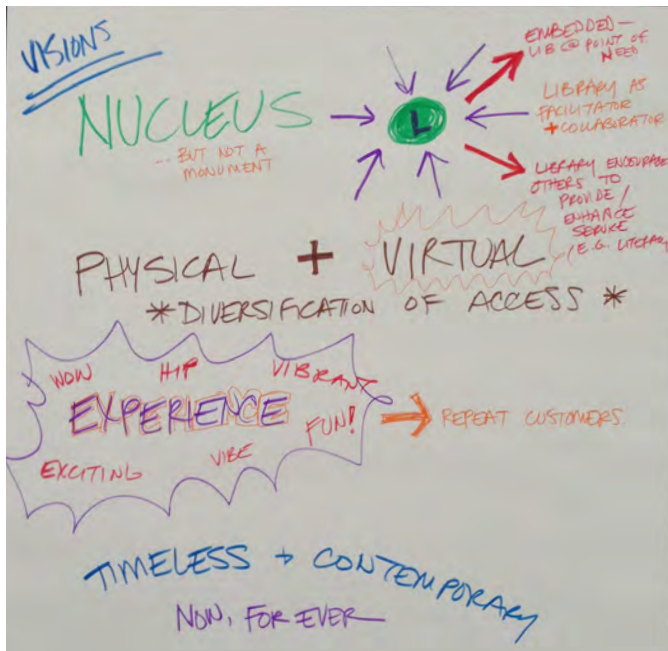 VISIONS
NUCLEUS
...BUT NOT A
MONUMENT
L
EMBEDDED—
LIB @ POINT OF
NEED
LIBRARY AS
FACILITATOR
+ COLLABORATOR
LIBRARY ENCOURAGE
OTHERS TO
PROVIDE/
ENHANCE
SERVICE
(E.G. LITERACY
PHYSICAL + VIRTUAL
*DIVERSIFICATION OF ACCESS *
WOW HIP VIBRANT
EXPERIENCE
FUN!
EXCITING VIBE
REPEAT CUSTOMERS.
TIMELESS + CONTEMPORARY
NOW, FOR EVER